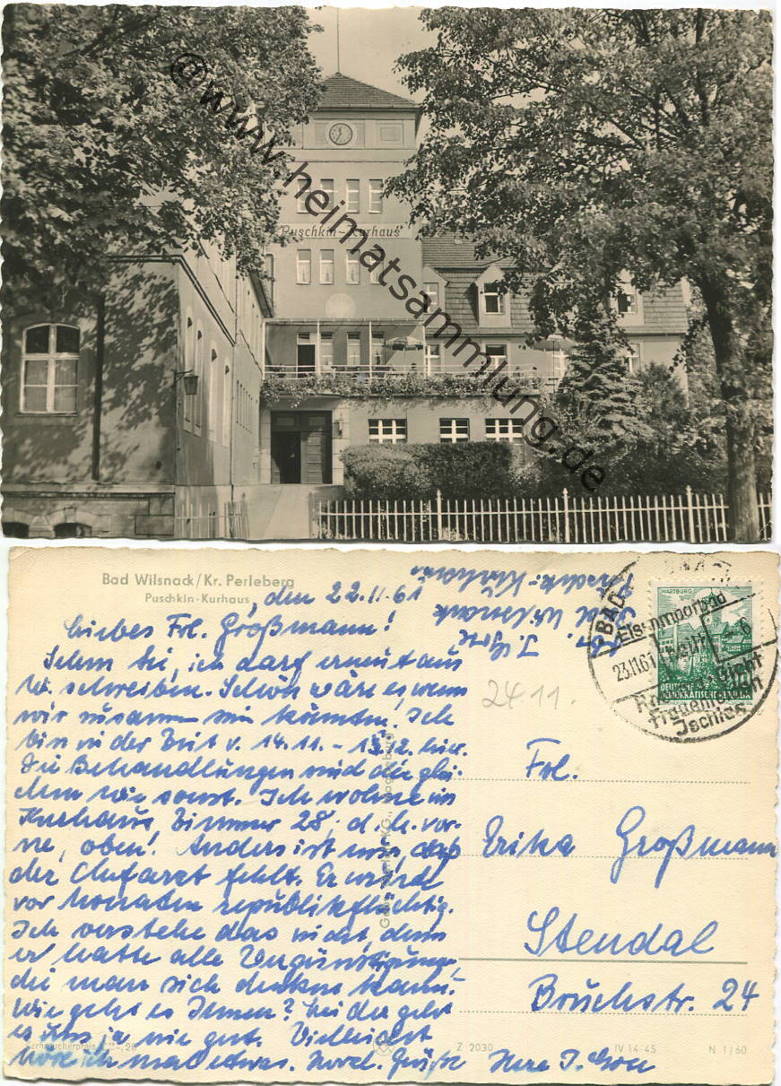 @www.heimatsammlung.de
Puschkin-Kurhaus
Bad Wilsnack/Kr. Perleberg
Puschkin-Kurhaus
, den 22.11.61
Liebes Frl. Großmann!
Sehen Sie, ich darf erneut aus
W. schreiben. Schön wäre es, wenn
wir zusammen sein könnten. Ich
bin in der Zeit v. 14.11. - 13.12. hier.
Die Behandlungen sind die glei-
chen wie sonst. Ich wohne im
Kurhaus, Zimmer 28, d. h. vor-
ne, oben! Anders ist nur, daß
der Chefarzt fehlt. Er wurde
vor Monaten republikflüchtig.
Ich verstehe das nicht, denn
er hatte alle Vergünstigungen,
die man sich denken kann.
Wie geht es Ihnen? Leider geht
es uns ja nie gut. Vielleicht
höre ich mal etwas. Herzl. Grüße Ihre I.
Bad Wilsnack
BAD
Eisenmoorbad
23.11.61
Frauenleiden
Ischias
WARTBURG
DEUTSCHE
DEMOKRATISCHE
24 11.
Frl.
Erika Großmann
Stendal
Bruchstr. 24
Z 2030
IV-14-45
N 1/60